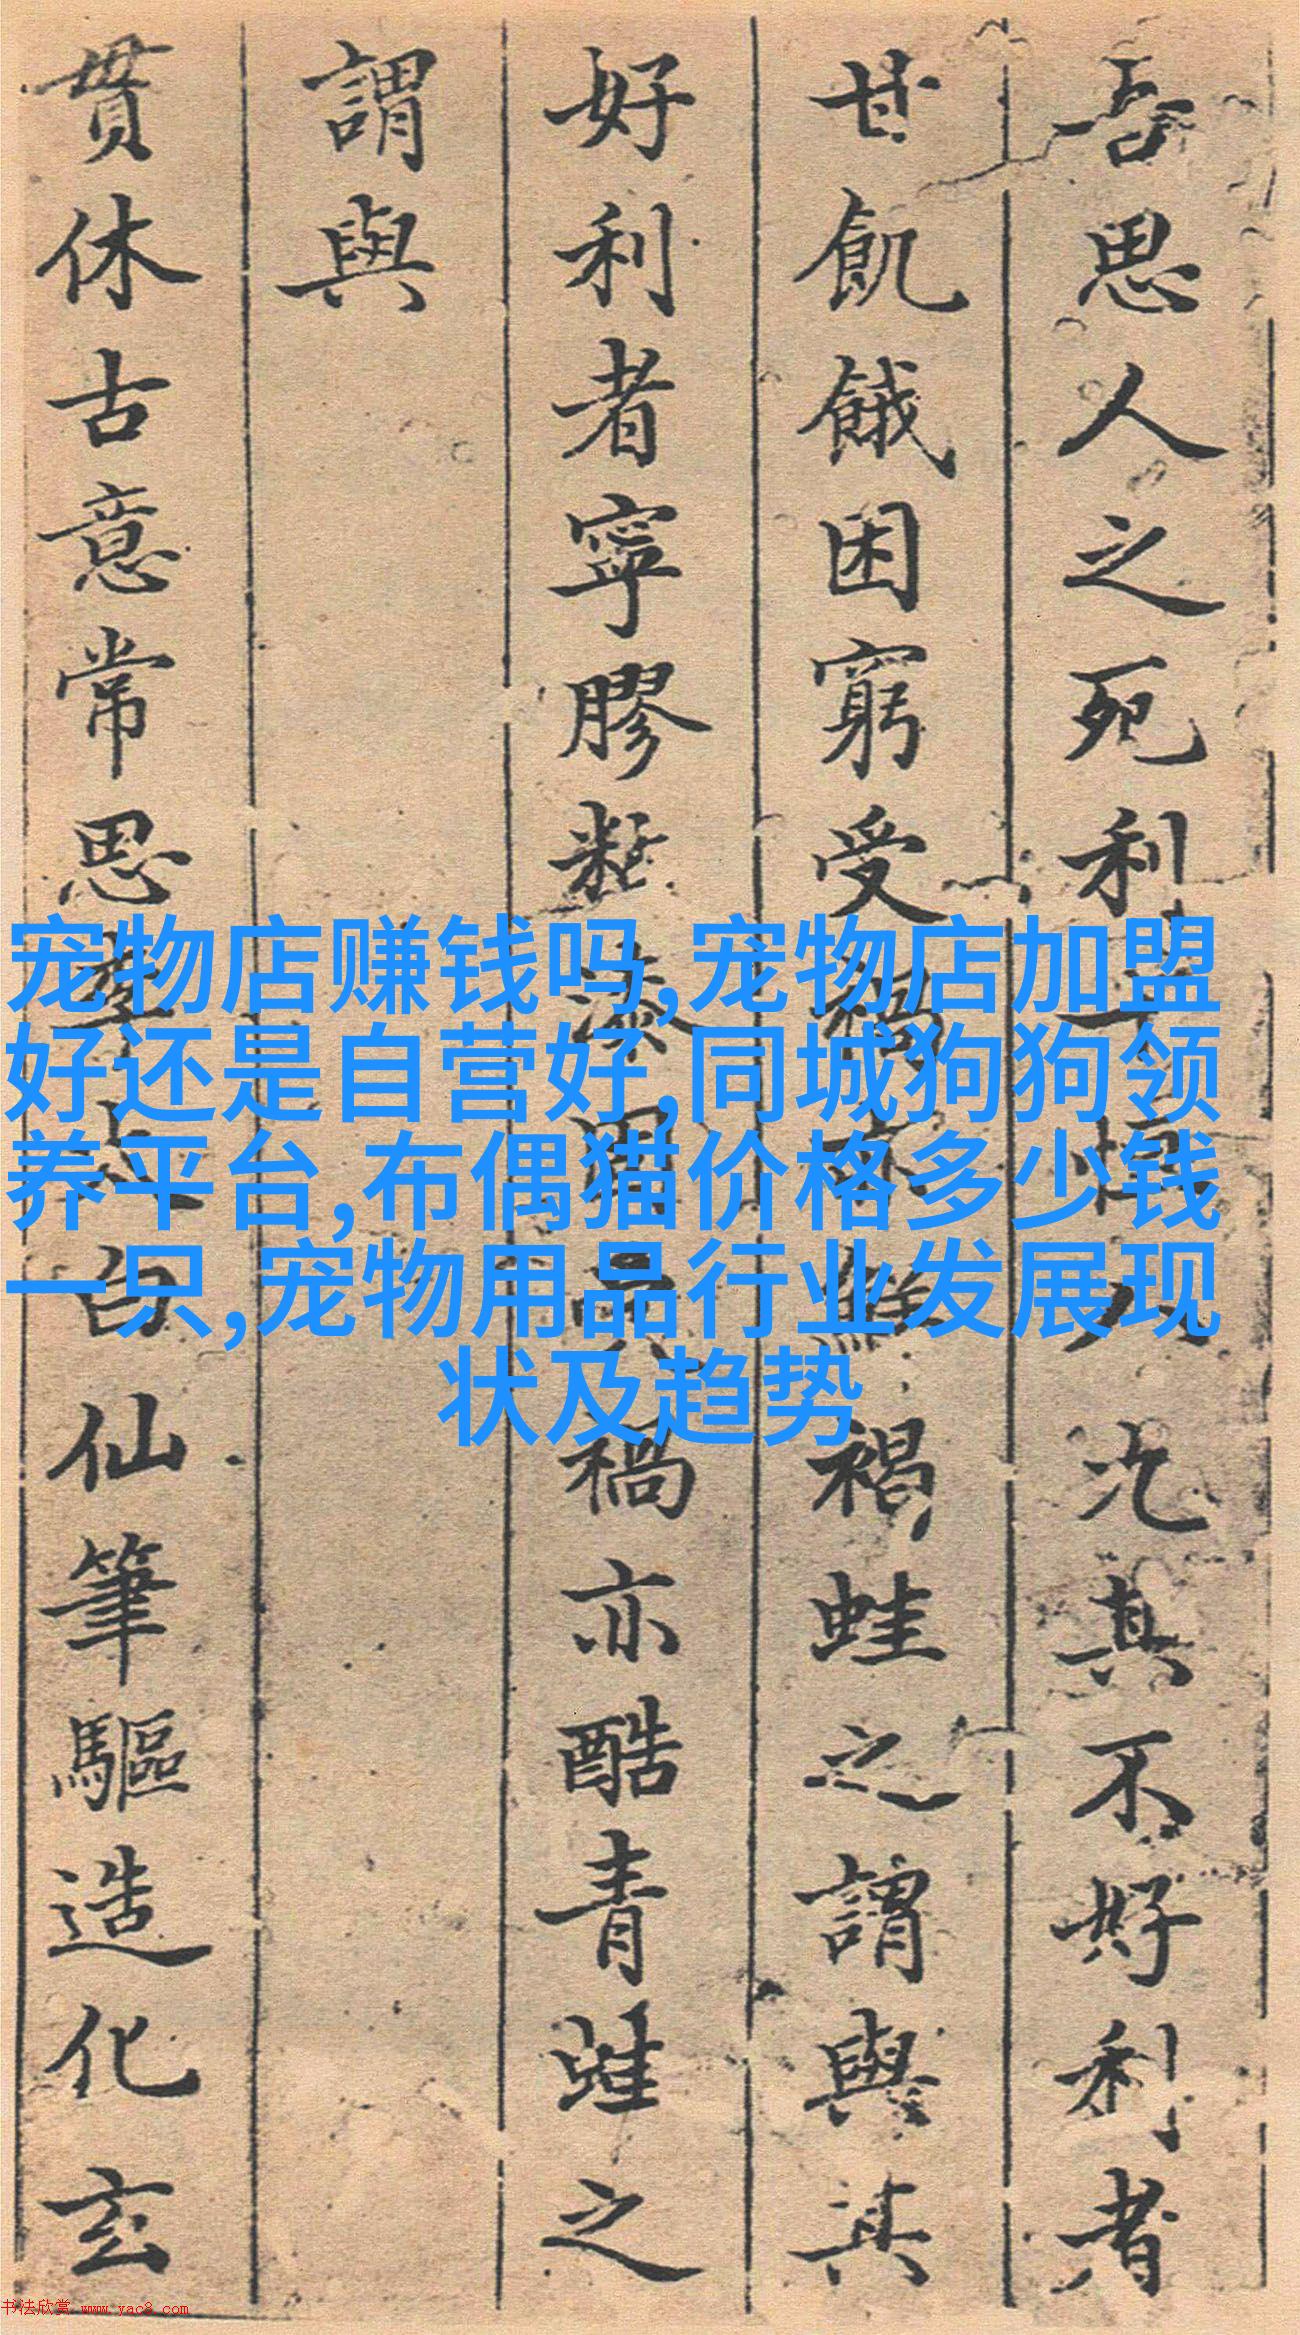 吾思人之死利
汽其不好利者
甘飢餓困窮受
褐蛙之謂與其
好利者寧膠
禍亦酷青蛙之
謂與
貫休古意常思
白仙筆驅造化玄
宠物店赚钱吗,宠物店加盟
好还是自营好,同城狗狗领
养平台,布偶猫价格多少钱
一只,宠物用品行业发展现
状及趋势
书法欣赏 www.yac8.com